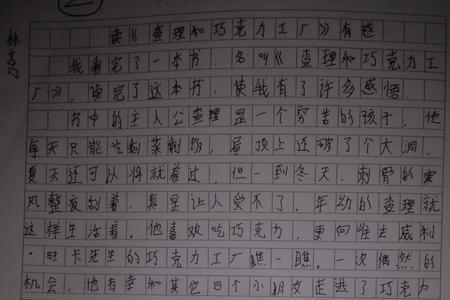 林
读《查理和巧克力工厂》有感
我看完了一本书，名叫《查理和巧克力工
厂》，读完了这本书，使我有了许多感悟。
书中的主人公查理是一个穷苦的孩子，他
每天只能吃剩菜剩饭，屋顶上还破了个大洞，
夏天还可以将就着过，但一到冬天，刺骨的寒
风整夜刮着，真是让人受不了。年幼的查理就
这样生活着。他喜欢吃巧克力，更向往去威利
·旺卡先生的巧克力工厂瞧一瞧。一次偶然的
机会，他有幸和其他四个小朋友走进了巧克力